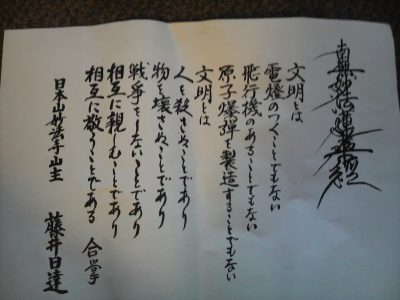 南無妙法蓮華経
文明とは
電燈のつくことでもない
飛行機のあることでもない
原子爆弾を製造することでもない
文明とは
人を殺さぬことであり
物を壊さぬことであり
戦争をしないことであり
相互に親しむことであり
相互に敬うことである 合掌
日本山妙法寺山主 藤井日達